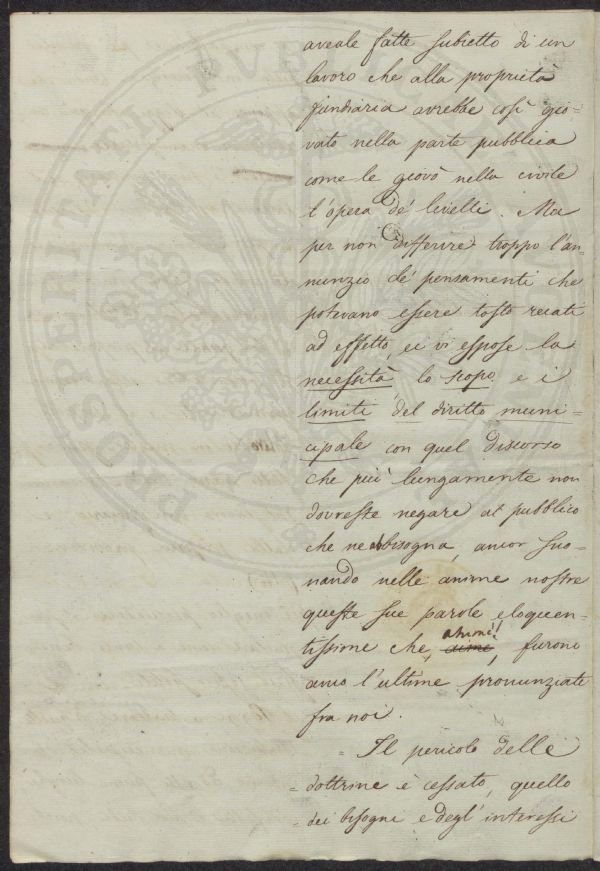 aveale fatte subietto di un
lavoro che alla proprietà
fondiaria avrebbe così gio-
vato nella parte pubblica
come le giovò nella civile
l'opera de' livelli. Ma
per non differire troppo l'an-
nunzio de' pensamenti che
potevano essere tosto recati
ad effetto, ei vi espose la
necessità, lo scopo e i
limiti del diritto muni-
cipale con quel discorso
che più lungamente non
dovreste negare al pubblico
che ne abbisogna, ancor suo-
nando nelle anime nostre
queste sue parole eloquen-
tissime che, ahimè!, furono
anco l'ultime pronunziate
fra noi.
= Il pericolo delle
= dottrine è cessato, quello
= dei bisogni e degl'interessi
PROSPERITATI PUBLICAE